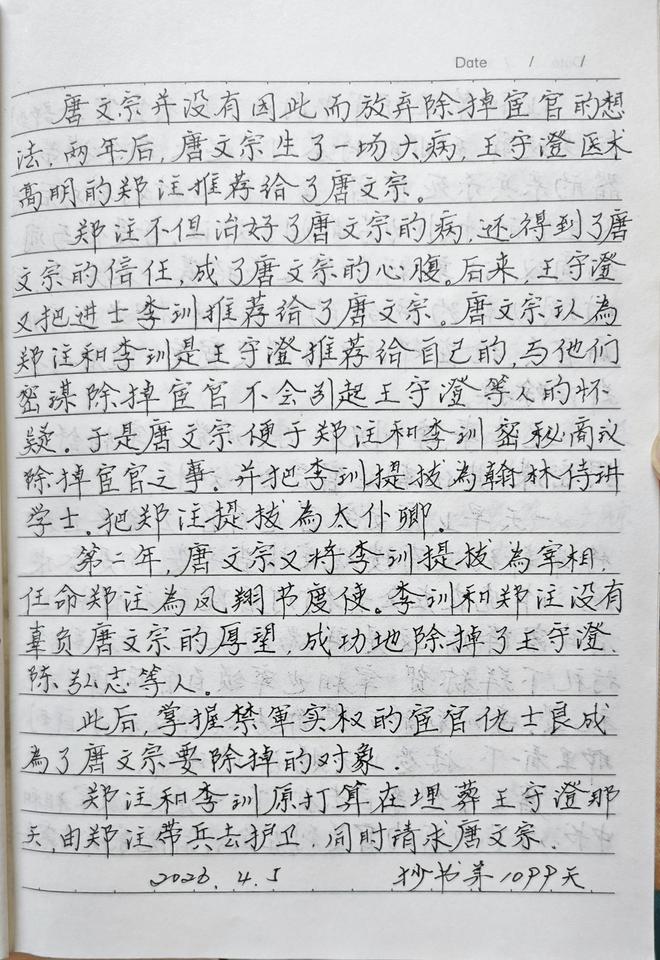 Date / /
唐文宗并没有因此而放弃除掉宦官的想
法，两年后，唐文宗生了一场大病，王守澄医术
高明的郑注推荐给了唐文宗。
郑注不但治好了唐文宗的病，还得到了唐
文宗的信任，成了唐文宗的心腹。后来，王守澄
又把进士李训推荐给了唐文宗。唐文宗以為
郑注和李训是王守澄推荐给自己的，与他们
密谋除掉宦官不会引起王守澄等人的怀
疑。于是唐文宗便于郑注和李训密秘商议
除掉宦官之事。并把李训提拔為翰林侍讲
学士。把郑注提拔為太仆卿。
第二年，唐文宗又将李训提拔為宰相，
任命郑注為凤翔节度使。李训和郑注没有
辜负唐文宗的厚望，成功地除掉了王守澄、
陈弘志等人。
此后，掌握禁軍实权的宦官仇士良成
為了唐文宗要除掉的对象。
郑注和李训原打算在埋葬王守澄那
天，由郑注带兵去护卫，同时请求唐文宗.
2026.4.5 抄书第1099天